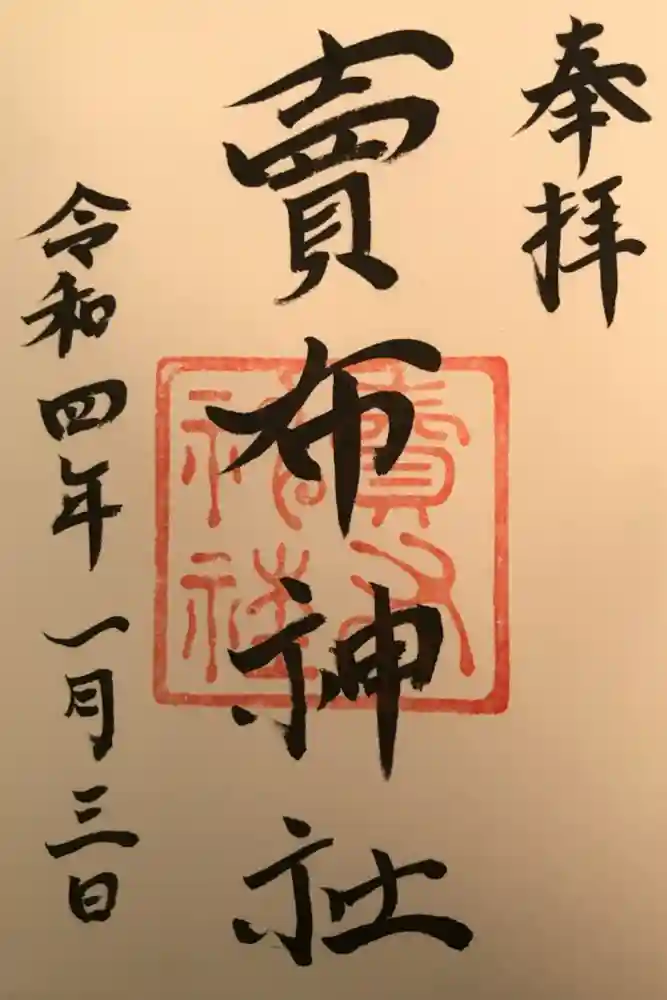 奉拝
賣布神社
令和四年一月三日